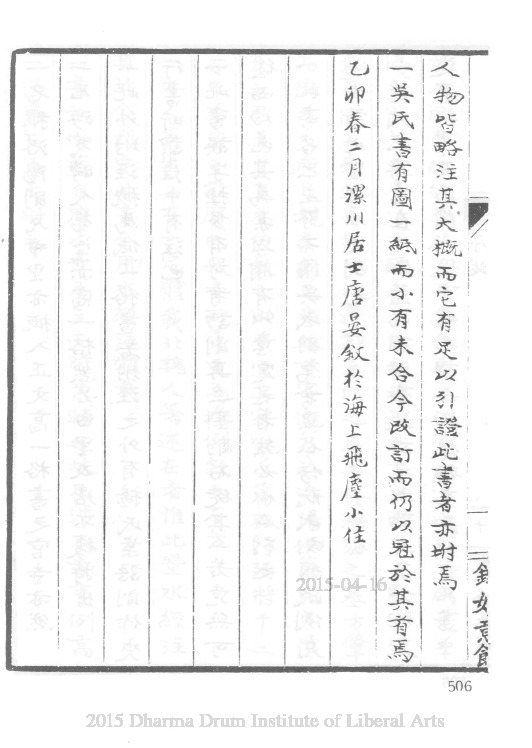 人物皆略注其大概而它有足以引證此書者亦坿焉
一吳氏書有圖一紙而小有未合今改訂而仍以冠於其首焉
乙卯春二月漯川居士唐晏敘於海上飛塵小住
2015-04-16
506
2015 Dharma Drum Institute of Liberal Arts